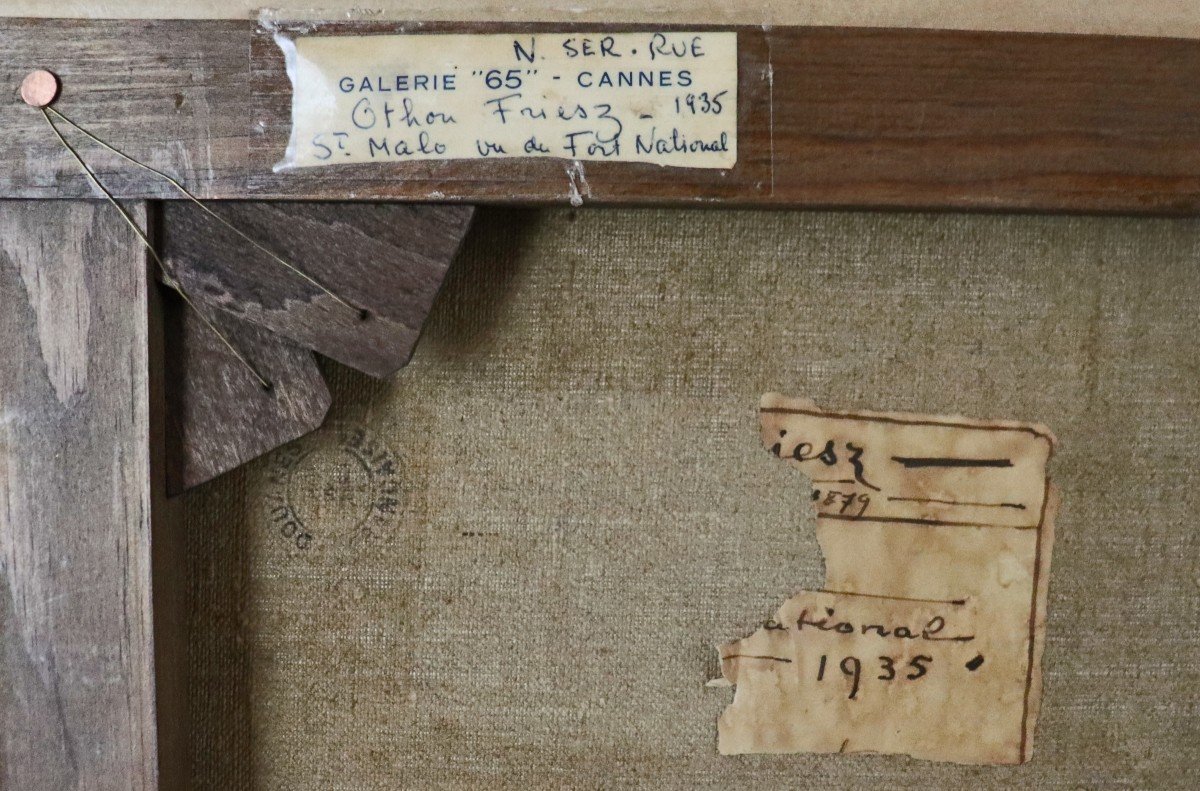 N. SER. RUE
GALERIE "65" - CANNES
Othon Friesz - 1935
St Malo vu du Fort National
iesz
1879
ational
1935